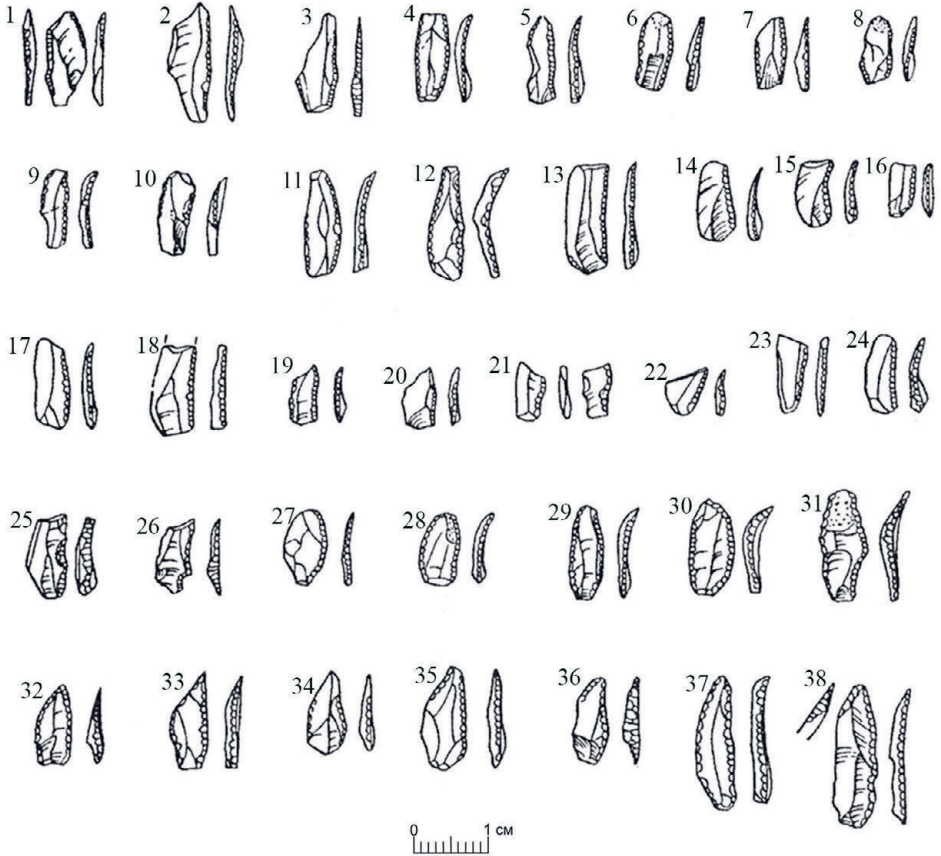 1 2 3 4 5 6 7 8
9 10 11 12 13 14 15 16
17 18 19 20 21 22 23 24
25 26 27 28 29 30 31
32 33 34 35 36 37 38
0 1 см